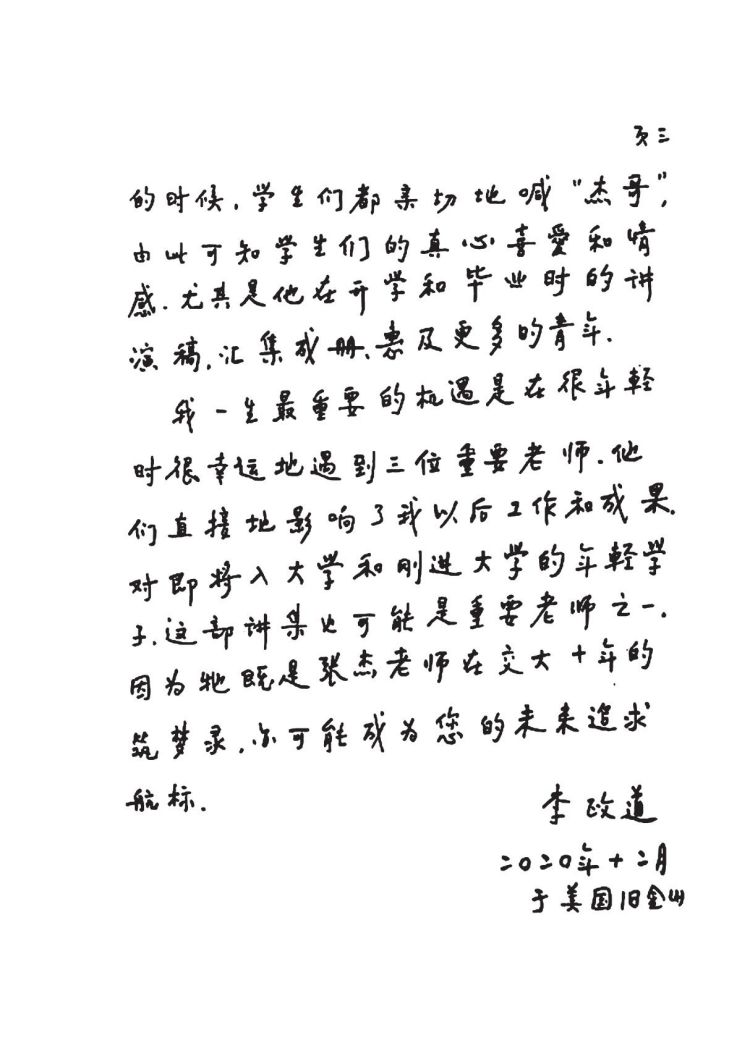 页三
的时候,学生们都亲切地喊“杰哥”,
由此可知学生们的真心喜愛和情
感.尤其是他在开学和毕业时的讲
演稿,汇集成册、惠及更多的青年.
我一生最重要的机遇是在很年轻
时很幸运地遇到三位重要老师.他
们直接地影响了我以后工作和成果.
对即将入大学和刚进大学的年轻学
子.这部讲集也可能是重要老师之一.
因为牠既是张杰老师在交大十年的
筑梦录,亦可能成为您的未来追求
航标.
李政道
二0二0年十二月
于美国旧金山